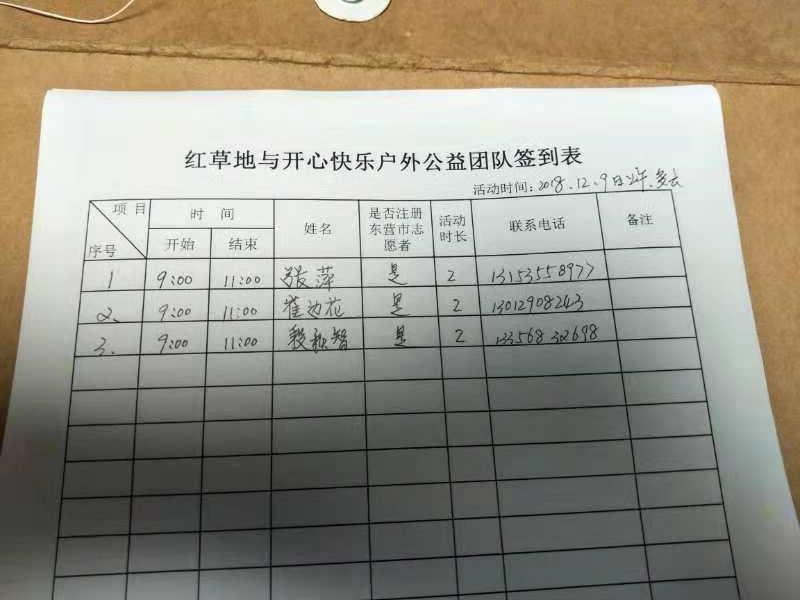 红草地与开心快乐户外公益团队签到表
活动时间：2018.12.9日
项目 时间 姓名 是否注册东营市志愿者 活动时长 联系电话 备注
序号 开始 结束
1 9:00 11:00 张萍 是 2 13153558977
2、 9:00 11:00 崔边花 是 2 13012908243
3. 9:00 11:00 智 是 2 13356832698